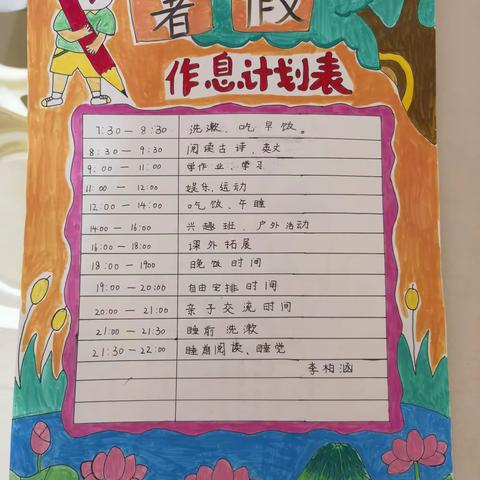 暑假
作息计划表
7:30—8:30 洗漱、吃早饭。
8:30—9:30 阅读古诗、英文
9:00—11:00 学作业、学习
11:00—12:00 娱乐、运动
12:00—14:00 吃饭、午睡
14:00—16:00 兴趣班、户外活动
16:00—18:00 课外拓展
18:00—1900 晚饭时间
19:00—20:00 自由安排时间
20:00—21:00 亲子交流时间
21:00—21:30 睡前洗漱
21:30—22:00 睡前阅读、睡觉
李柏涵